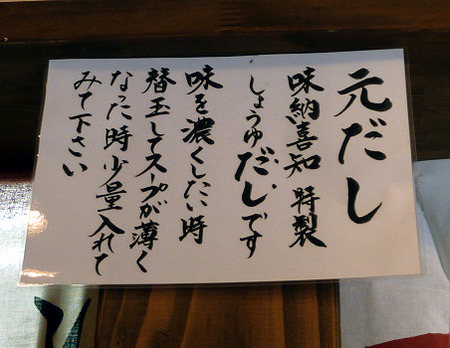 元だし
味納喜知 特製
しょうゆだしです
味を濃くしたい時
替玉してスープが薄く
なった時少量入れて
みて下さい